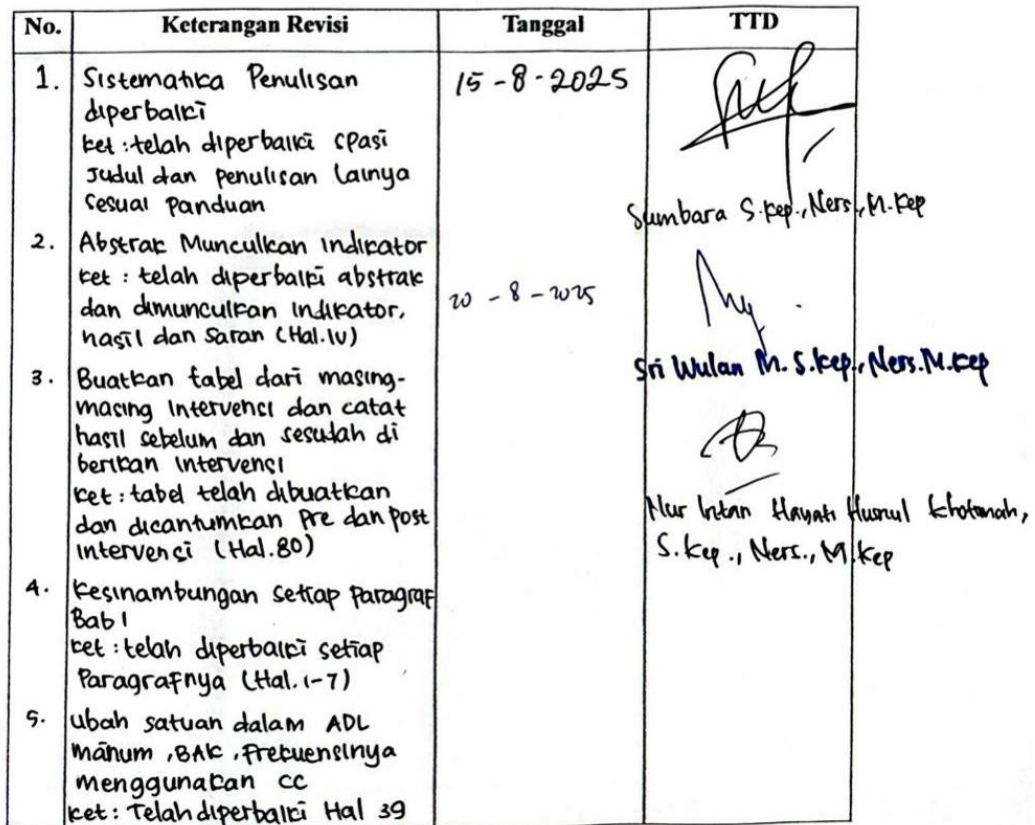 No. Keterangan Revisi Tanggal TTD
1. Sistematika Penulisan 15-8-2025
diperbaiki
ket : telah diperbaiki spasi
Judul dan penulisan lainya
sesuai panduan
Sumbara S.kep., Ners., M.kep
2. Abstrak Munculkan indikator
ket : telah diperbaiki abstrak
dan dimunculkan indikator, 20-8-2025
hasil dan Saran (Hal.iv)
Sri Wulan M. S.kep., Ners. M.kep
3. Buatkan tabel dari masing-
masing intervensi dan catat
hasil sebelum dan sesudah di
berikan intervensi
ket : tabel telah dibuatkan
dan dicantumkan Pre dan post
intervensi (Hal.80)
Nur Intan Hayati Husnul khotimah,
S.kep., Ners., M.kep
4. kesinambungan setiap paragraf
Bab 1
ket : telah diperbaiki setiap
Paragrafnya (Hal.1-7)
5. ubah satuan dalam ADL
manum, BAK, frekuensinya
menggunakan cc
ket : Telah diperbaiki Hal 39